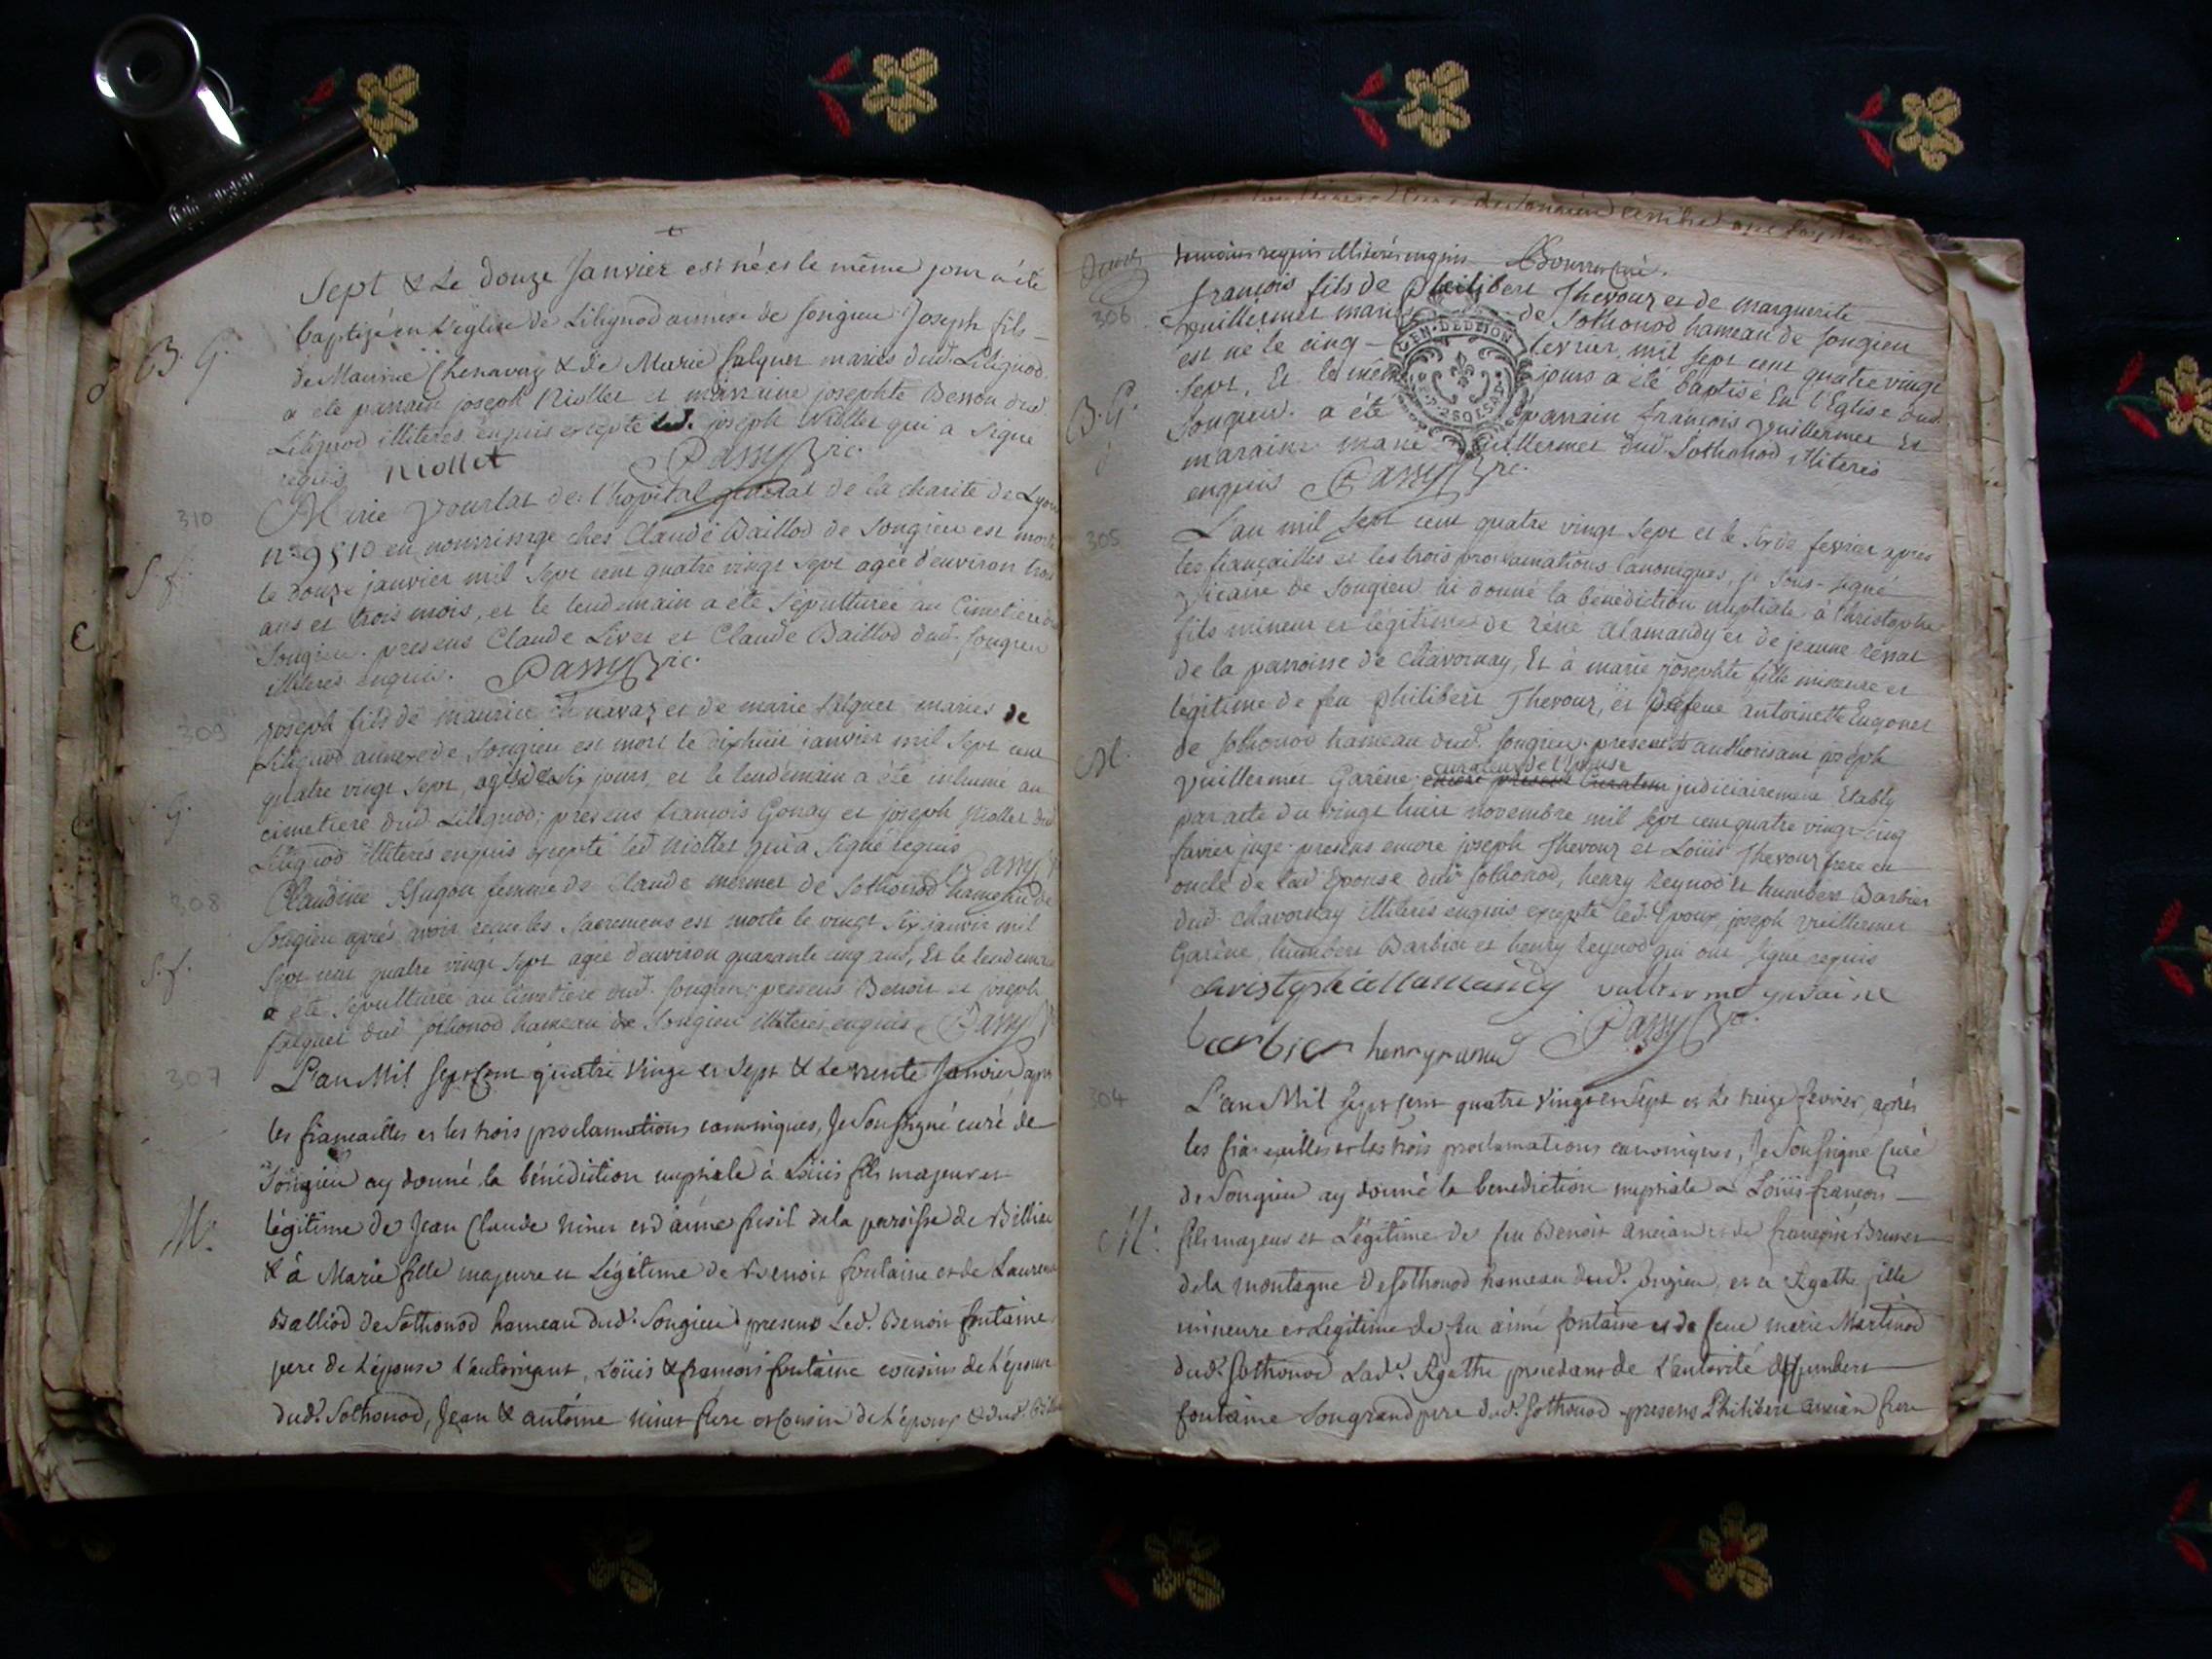 Sept & Le douze Janvier est né et le même jour a été
baptizé en L'eglise de Lilignod annexe de songieu Joseph fils
B. G.
de Maurice Chenavaz & de Marie Salquet mariés dud. Lilignod.
a été parrain joseph Niollet et marraine josephte Besson dud
Lilignod illiteres enquis excepté led. joseph Niollet qui a signé
requis Niollet Passy Vic.
310
Marie de l'hopital general de la charité de Lyon
n.º 9510 en nourrissage ches Claude Baillod de Songieu est morte
S. f.
le douze janvier mil sept cent quatre vingt sept agée d'environ trois
ans et trois mois, et le lendemain a été sépulturée au Cimetiere du
Songieu. presens Claude Livet et Claude Baillod dud. songieu
illiteres enquis. Passy Vic.
309
joseph fils de maurice Chenavaz et de marie salquet mariés de
Lilignod annexe de Songieu est mort le dixhuit janvier mil sept cent
quatre vingt sept, agé de six jours, et le lendemain a été inhumé au
G.
cimetiere dud. Lilignod; presens françois Gonay et joseph Niollet dud
Lilignod illiteres enquis excepté led Niollet qui a signé requis Passy V
308
Claudine Hugon femme de Claude mermet de Sothonod hameau de
Songieu après avoir reçu les sacremens est morte le vingt six janvier mil
S. f.
sept cent quatre vingt sept agée d'environ quarante cinq ans, Et le lendemain
a été sépulturée au Cimetiere dud. songieu; presens Benoit et joseph
salquet dud sothonod hameau de Songieu illiteres enquis Passy V
307
L'an Mil sept Cent quatre vingt et sept & Le trente Janvier après
les fiancailles et les trois proclamations canoniques, Je Soussigné curé de
Songieu ay donné la bénédiction nuptiale à Loüis fils majeur et
M.
légitime de Jean Claude Ninet et d'anne de la paroisse de Billieu
& à Marie fille majeure et Légitime de Benoit fontaine et de Laurence
Balliod de Sothonod hameau dud. Songieu presens Led. Benoit fontaine
pere de l'épouse l'autorisant, Loüis & francois fontaine cousins de l'épouse
dud. Sothonod, Jean & antoine Ninet frere et Cousin de l'époux & dud.
temoins requis illiterés enquis
306
françois fils de philibert Thevoux et de marguerite
Vuillermet mariés de Sothonod hameau de songieu
est né le cinq fevrier mil sept cent quatre vingt
sept, Et le même jour a été baptisé En l'Eglise dud.
B. G.
Songieu. a été parrain françois Vuillermet Et
maraine marie Vuillermet dud. Sothonod illiterés
enquis Passy Vic.
GEN. DE DIJON
305
L'an mil sept cent quatre vingt sept et le six de fevrier après
les fiançailles et les trois proclamations Canoniques, je sous-signé
Vicaire de Songieu ai donné la bénédiction nuptiale à Christophe
fils mineur et légitime de rené alamandy et de jeanne
de la parroisse de Chavornay, Et à marie josephte fille mineure et
légitime de feu philibert Thevoux, et de feue antoinette
de Sothonod hameau dud. songieu. present et authorisant joseph
M.
Vuillermet Garêne, curateur de l'épouse judiciairement Etably
par acte du vingt huit novembre mil sept cent quatre vingt-cinq
favrier juge. presens encore joseph Thevoux et Loüis Thevoux frere et
oncle de lad Epouse dud sothonod, henry Reynod et humbert Barbier
dud. chavornay illiterés enquis excepté led. Epoux, joseph Vuillermet
Garêne, humbert Barbier et henry Reynod qui ont signé requis
christophe allamandy
barbier henry Passy Vic.
304
L'an Mil Sept Cent quatre vingt et Sept et Le treize fevrier, après
les fiancailles et les trois proclamations canoniques, Je Soussigné Curé
de Songieu ay donné la benediction nuptiale à Loüis françois
M.
fils majeur et Légitime de feu Benoit ancian et de françoise Brunet
de la montagne de Sothonod hameau dud. songieu, et à Agathe fille
mineure et Légitime de feu aimé fontaine et de feue marie Martinod
dud. Sothonod Lad. Agathe procedant de L'autorité d'humbert
fontaine Son grand pere dud. Sothonod presens Philibert ancian frere